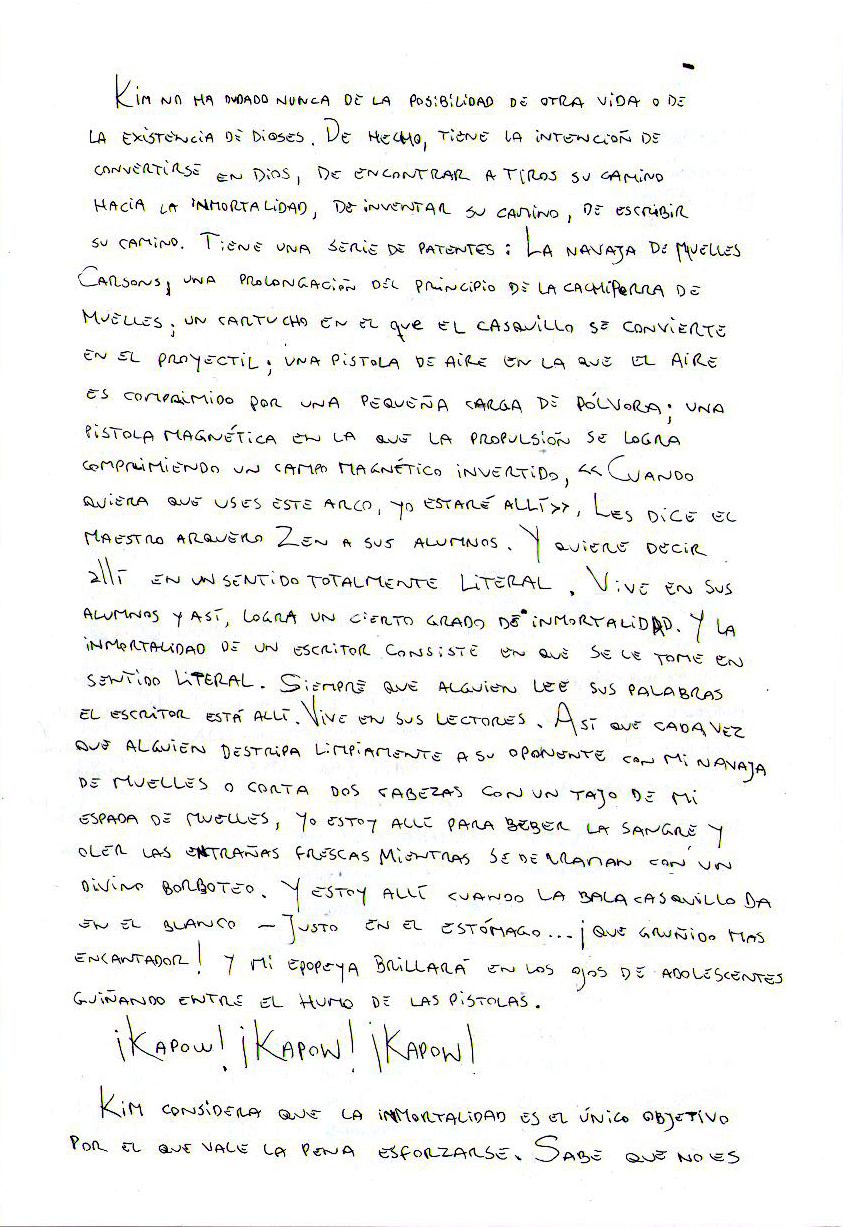 Kim no ha dudado nunca de la posibilidad de otra vida o de
la existencia de dioses. De hecho, tiene la intención de
convertirse en Dios, de encontrar a tiros su camino
hacia la inmortalidad, de inventar su camino, de escribir
su camino. Tiene una serie de patentes: La navaja de muelles
Carsons, una prolongación del principio de la cachiporra de
muelles; un cartucho en el que el casquillo se convierte
en el proyectil; una pistola de aire en la que el aire
es comprimido por una pequeña carga de pólvora; una
pistola magnética en la que la propulsión se logra
comprimiendo un campo magnético invertido, <<Cuando
quiera que uses este arco, yo estaré allí>>, Les dice el
maestro arquero Zen a sus alumnos. Y quiere decir
allí en un sentido totalmente literal. Vive en sus
alumnos y así, logra un cierto grado de inmortalidad. Y la
inmortalidad de un escritor consiste en que se le tome en
sentido literal. Siempre que alguien lee sus palabras
el escritor está allí. Vive en sus lectores. Así que cada vez
que alguien destripa limpiamente a su oponente con mi navaja
de muelles o corta dos cabezas con un tajo de mi
espada de muelles, yo estoy allí para beber la sangre y
oler las entrañas frescas mientras se derraman con un
divino borboteo. Y estoy allí cuando la bala casquillo da
en el blanco – Justo en el estómago... ¡que gruñido mas
encantador! Y mi epopeya brillará en los ojos de adolescentes
guiñando entre el humo de las pistolas.
¡Kapow! ¡Kapow! ¡Kapow!
Kim considera que la inmortalidad es el único objetivo
por el que vale la pena esforzarse. Sabe que no es